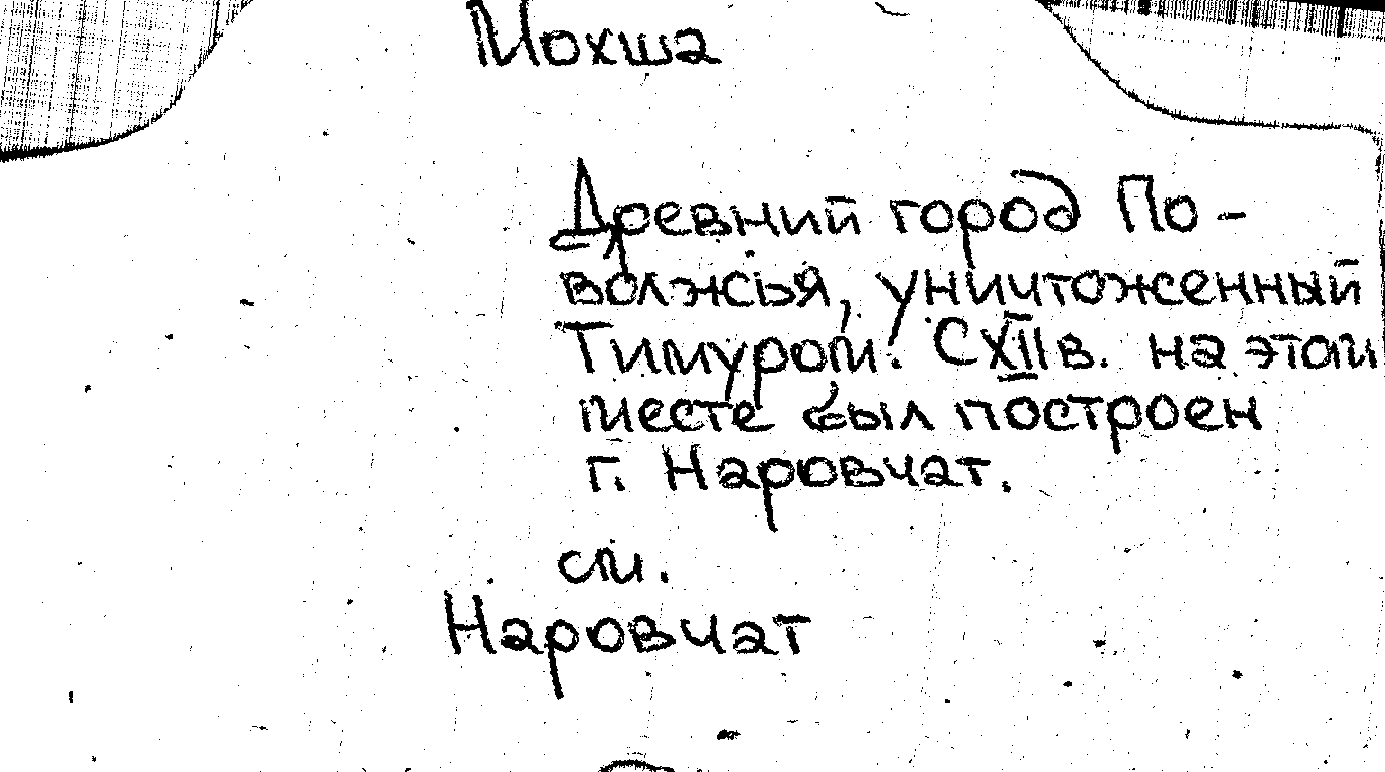 Мохша
Древний город По-
волжья, уничтоженный
Тимуром. С XII в. на этом
месте был построен
г. Наровчат.
см.
Наровчат